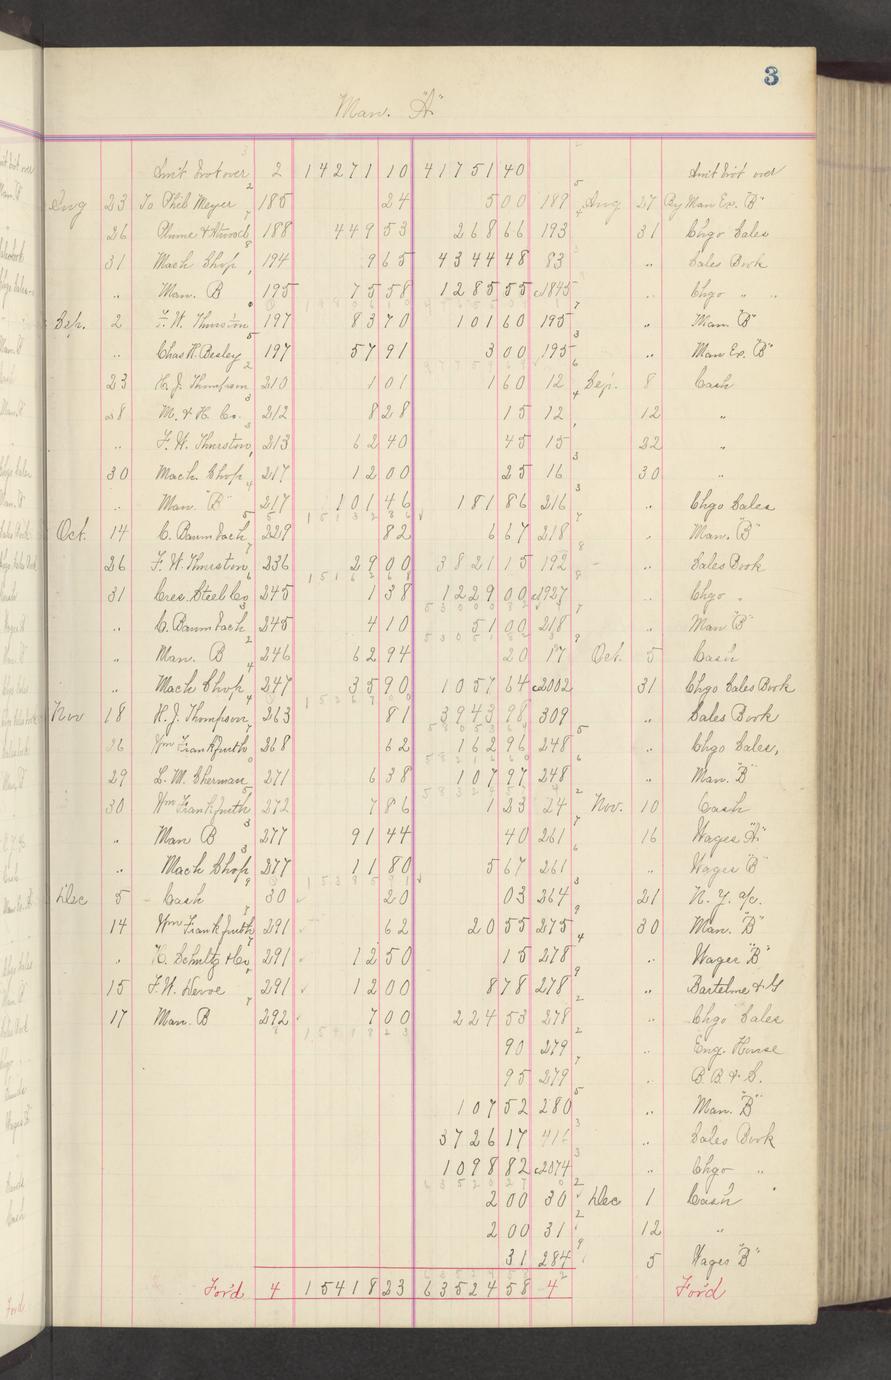 3
Man. "A"
Am't bro't over 2 14271 10 41751 40 Am't bro't over
Aug 23 To Phil Meyer 185 24 5 00 189 Aug 27 By Man Ex. "B"
26 Plume & Atwood 188 449 53 268 66 193 31 Chgo Sales
31 Mach Shop 194 9 65 4344 48 83 " Sales Book
" Man. B 195 75 58 1285 55 c1845 " Chgo " "
Sep. 2 F. W. Thurston 197 83 70 101 60 195 " Man. "B"
" Chas H. Besley 197 57 91 3 00 195 " Man Ex. "B"
23 H. J. Thompson 210 1 01 1 60 12 Sep. 8 Cash
28 M. & H. Co. 212 8 28 15 12 12 "
" F. W. Thurston 213 62 40 45 15 22 "
30 Mach. Shop 217 12 00 25 16 30 "
" Man. "B" 217 101 46 181 86 216 " Chgo Sales
Oct. 14 C. Baumbach 229 82 6 67 218 " Man. "B"
26 F. W. Thurston 236 29 00 3821 15 192 " Sales Book
31 Cres. Steel Co 245 1 38 1229 00 c1927 " Chgo "
" C. Baumbach 245 4 10 51 00 218 " Man "B"
" Man. B 246 62 94 20 17 Oct. 5 Cash
" Mach Shop 247 35 90 1057 64 c2002 31 Chgo Sales Book
Nov 18 H. J. Thompson 263 81 3943 98 309 " Sales Book
26 Wm Frankfurth 268 62 162 96 248 " Chgo Sales,
29 L. M. Sherman 271 6 38 107 97 248 " Man. "B"
30 Wm Frankfurth 272 7 86 1 23 24 Nov. 10 Cash
" Man B 277 91 44 40 261 16 Wages "A"
" Mach Shop 277 11 80 5 67 261 " Wages "B"
Dec 5 Cash 30 20 03 264 21 N. Y. a/c.
14 Wm Frankfurth 291 62 20 55 275 30 Man. "B"
" H. Schultz & Co 291 12 50 15 278 " Wages "B"
15 F. W. Devoe 291 12 00 8 78 278 " Bartelme & G
17 Man. B 292 7 00 224 53 278 " Chgo Sales
90 279 " Eng. House
95 279 " B. B. & S.
107 52 280 " Man. "B"
3726 17 416 " Sales Book
1098 82 c2074 " Chgo "
2 00 30 Dec 1 Cash
2 00 31 12 "
31 284 5 Wages "B"
For'd 4 15418 23 63524 58 4 For'd